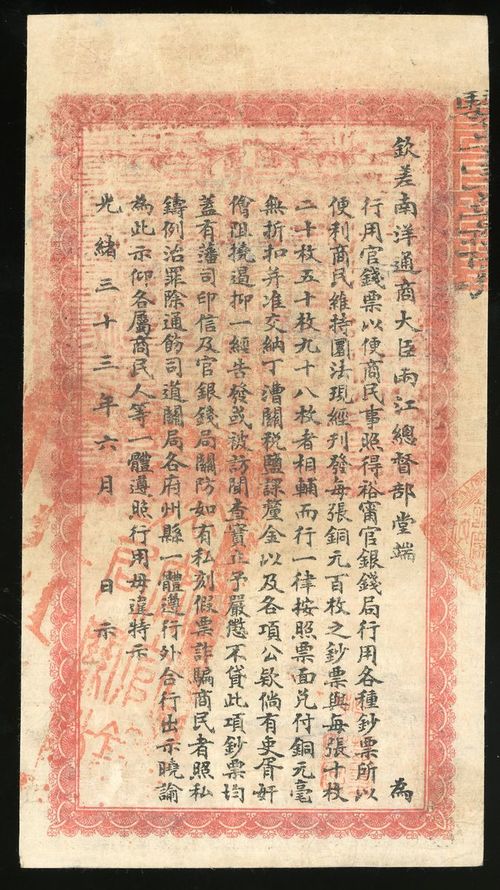 欽差南洋通商大臣兩江總督部堂端　為
行用官錢票以便商民事照得裕甯官銀錢局行用各種鈔票所以
便利商民維持圜法現經刊發每張銅元百枚之鈔票與每張十枚
二十枚五十枚九十八枚者相輔而行一律按照票面兌付銅元毫
無折扣并准交納丁漕關稅鹽課釐金以及各項公欵倘有吏胥奸
儈阻撓遏抑一經告發或被訪聞查實立予嚴懲不貸此項鈔票均
蓋有藩司印信及官銀錢局關防如有私刻假票詐騙商民者照私
鑄例治罪除通飭司道關局各府州縣一體遵行外合行出示曉諭
為此示仰各屬商民人等一體遵照行用毋違特示
光緒三十三年六月　日示